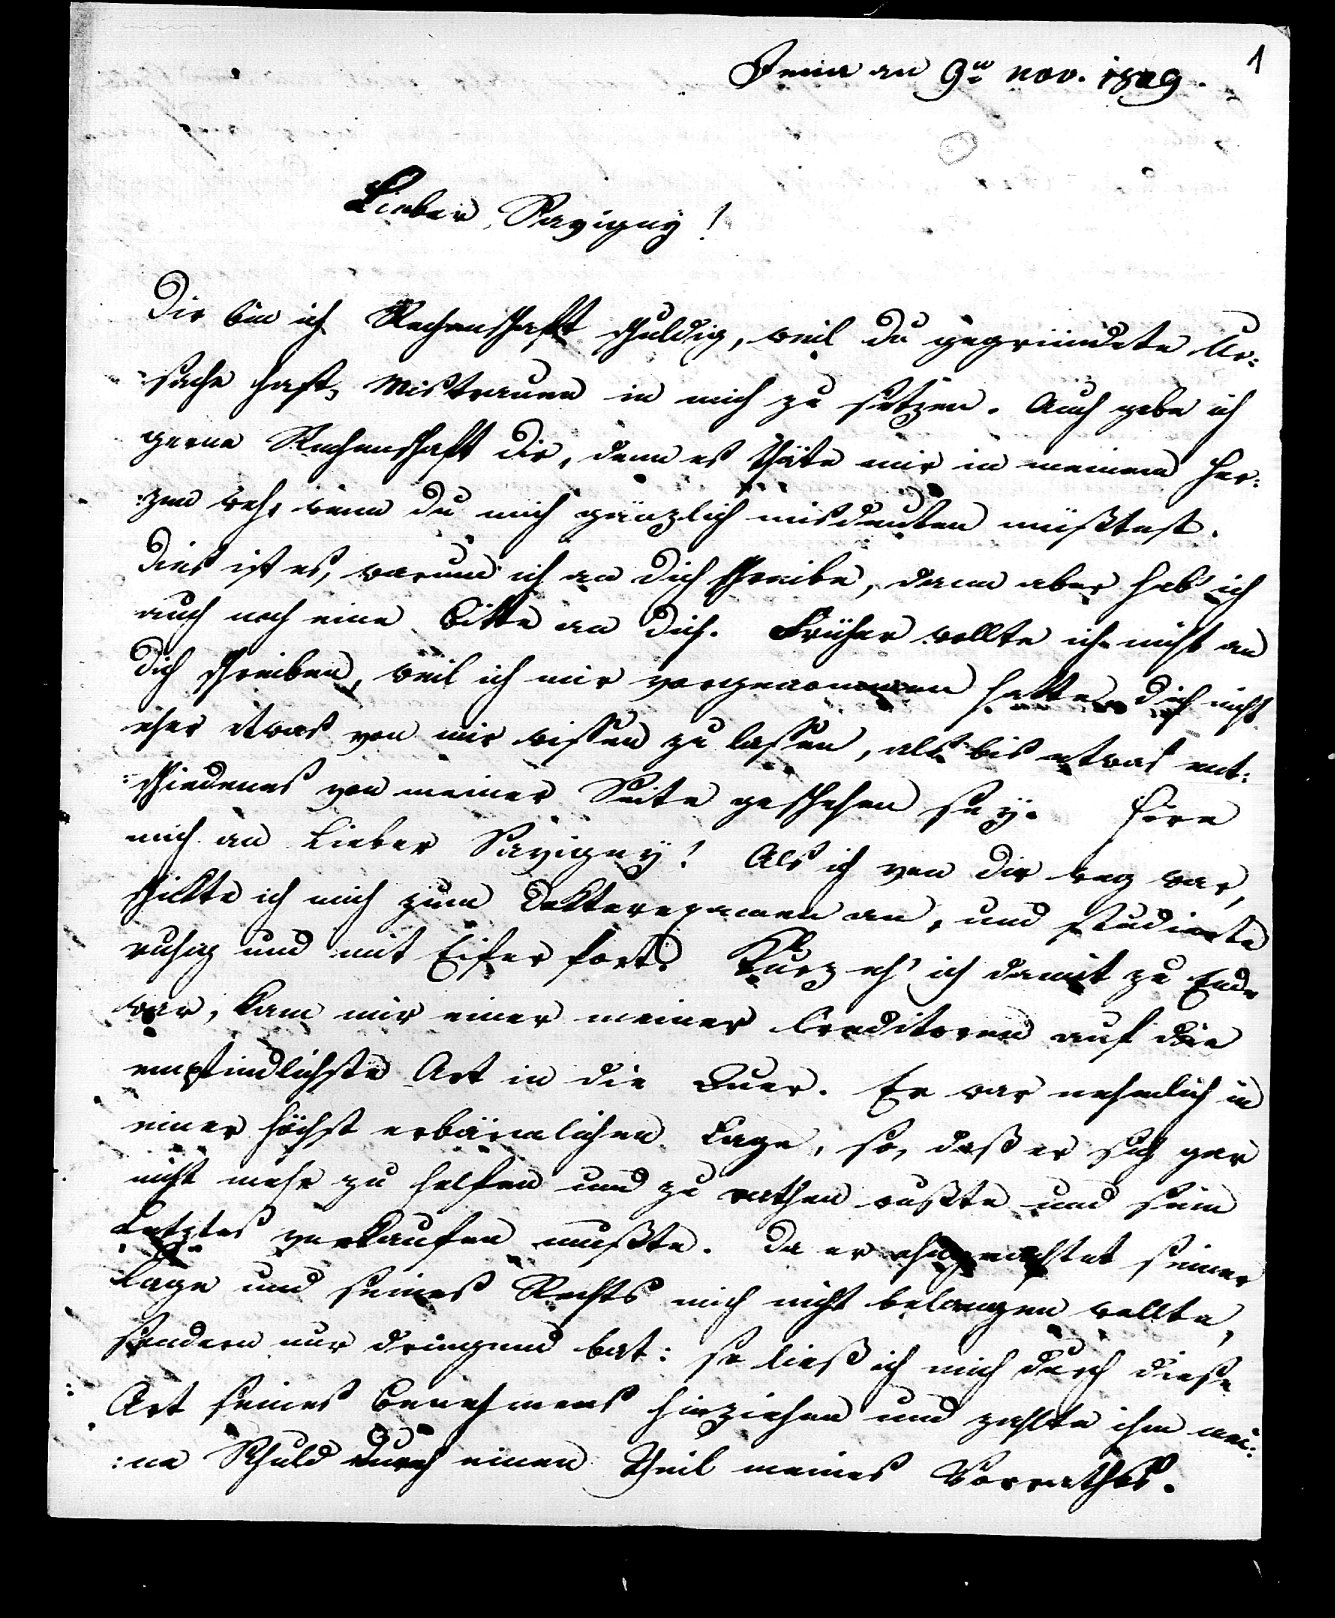 1
Jena am 9ten nov. 1809.
Lieber Savigny!
Dir bin ich Rechenschaft schuldig, weil du gegründete Ur=
=sache hast, Mistrauen in mich zu setzen. Auch gebe ich
gerne Rechenschaft dir, denn es thäte mir in meinem Her=
=zen weh, wenn du mich gänzlich misdeuten müßtest.
Dies ist es, warum ich an dich schreibe, dann aber hab' ich
auch noch eine Bitte an dich. Früher wollte ich nicht an
dich schreiben, weil ich mir vorgenommen hatte, dich nicht
eher etwas von mir wissen zu lassen, als bis etwas ent=
=schiedenes von meiner Seite geschehen sey. Höre
mich an Lieber Savigny! Als ich von dir weg war,
schikte ich mich zum Doktorexamen an, und studierte
ruhig und mit Eifer fort. Kurz eh' ich damit zu Ende
war, kam mir einer meiner Creditoren auf die
empfindlichste Art in die Quer. Er war nehmlich in
einer höchst erbärmlichen Lage, so, daß er sich gar
nicht mehr zu helfen und zu rathen wußte und sein
Letztes verkaufen mußte. Da er ohngeachtet seiner
Lage und seines Rechts mich nicht belangen wollte,
sondern nur dringend bat: so ließ ich mich durch diese
Art seines Benehmens hinziehen und zahlte ihm mei=
=ne Schuld durch einen Theil meines Vorrathes.